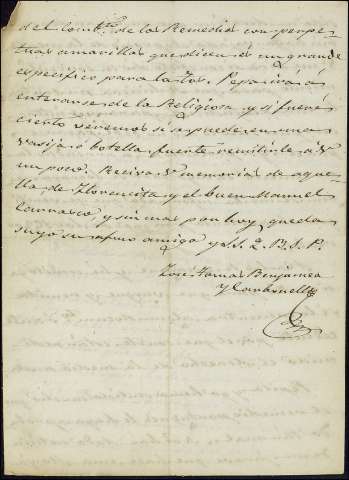 del Convto. de los Remedios con perpe-
tuas amarillas que dicen es un grande
especifico para la Tos. Pepa irá á
enterarse de la Religiosa y si fuere
cierto veremos si se puede en una
vasija ó botella fuerte remitirle á V
un poco. Reciva V memorias de aque-
lla, de Florencita y el buen Manuel
Carrasco y sin mas por hoy queda
suyo su afmo amigo y S. S. Q. B. S. P.
José Tomas Benjumea
y Carbonell